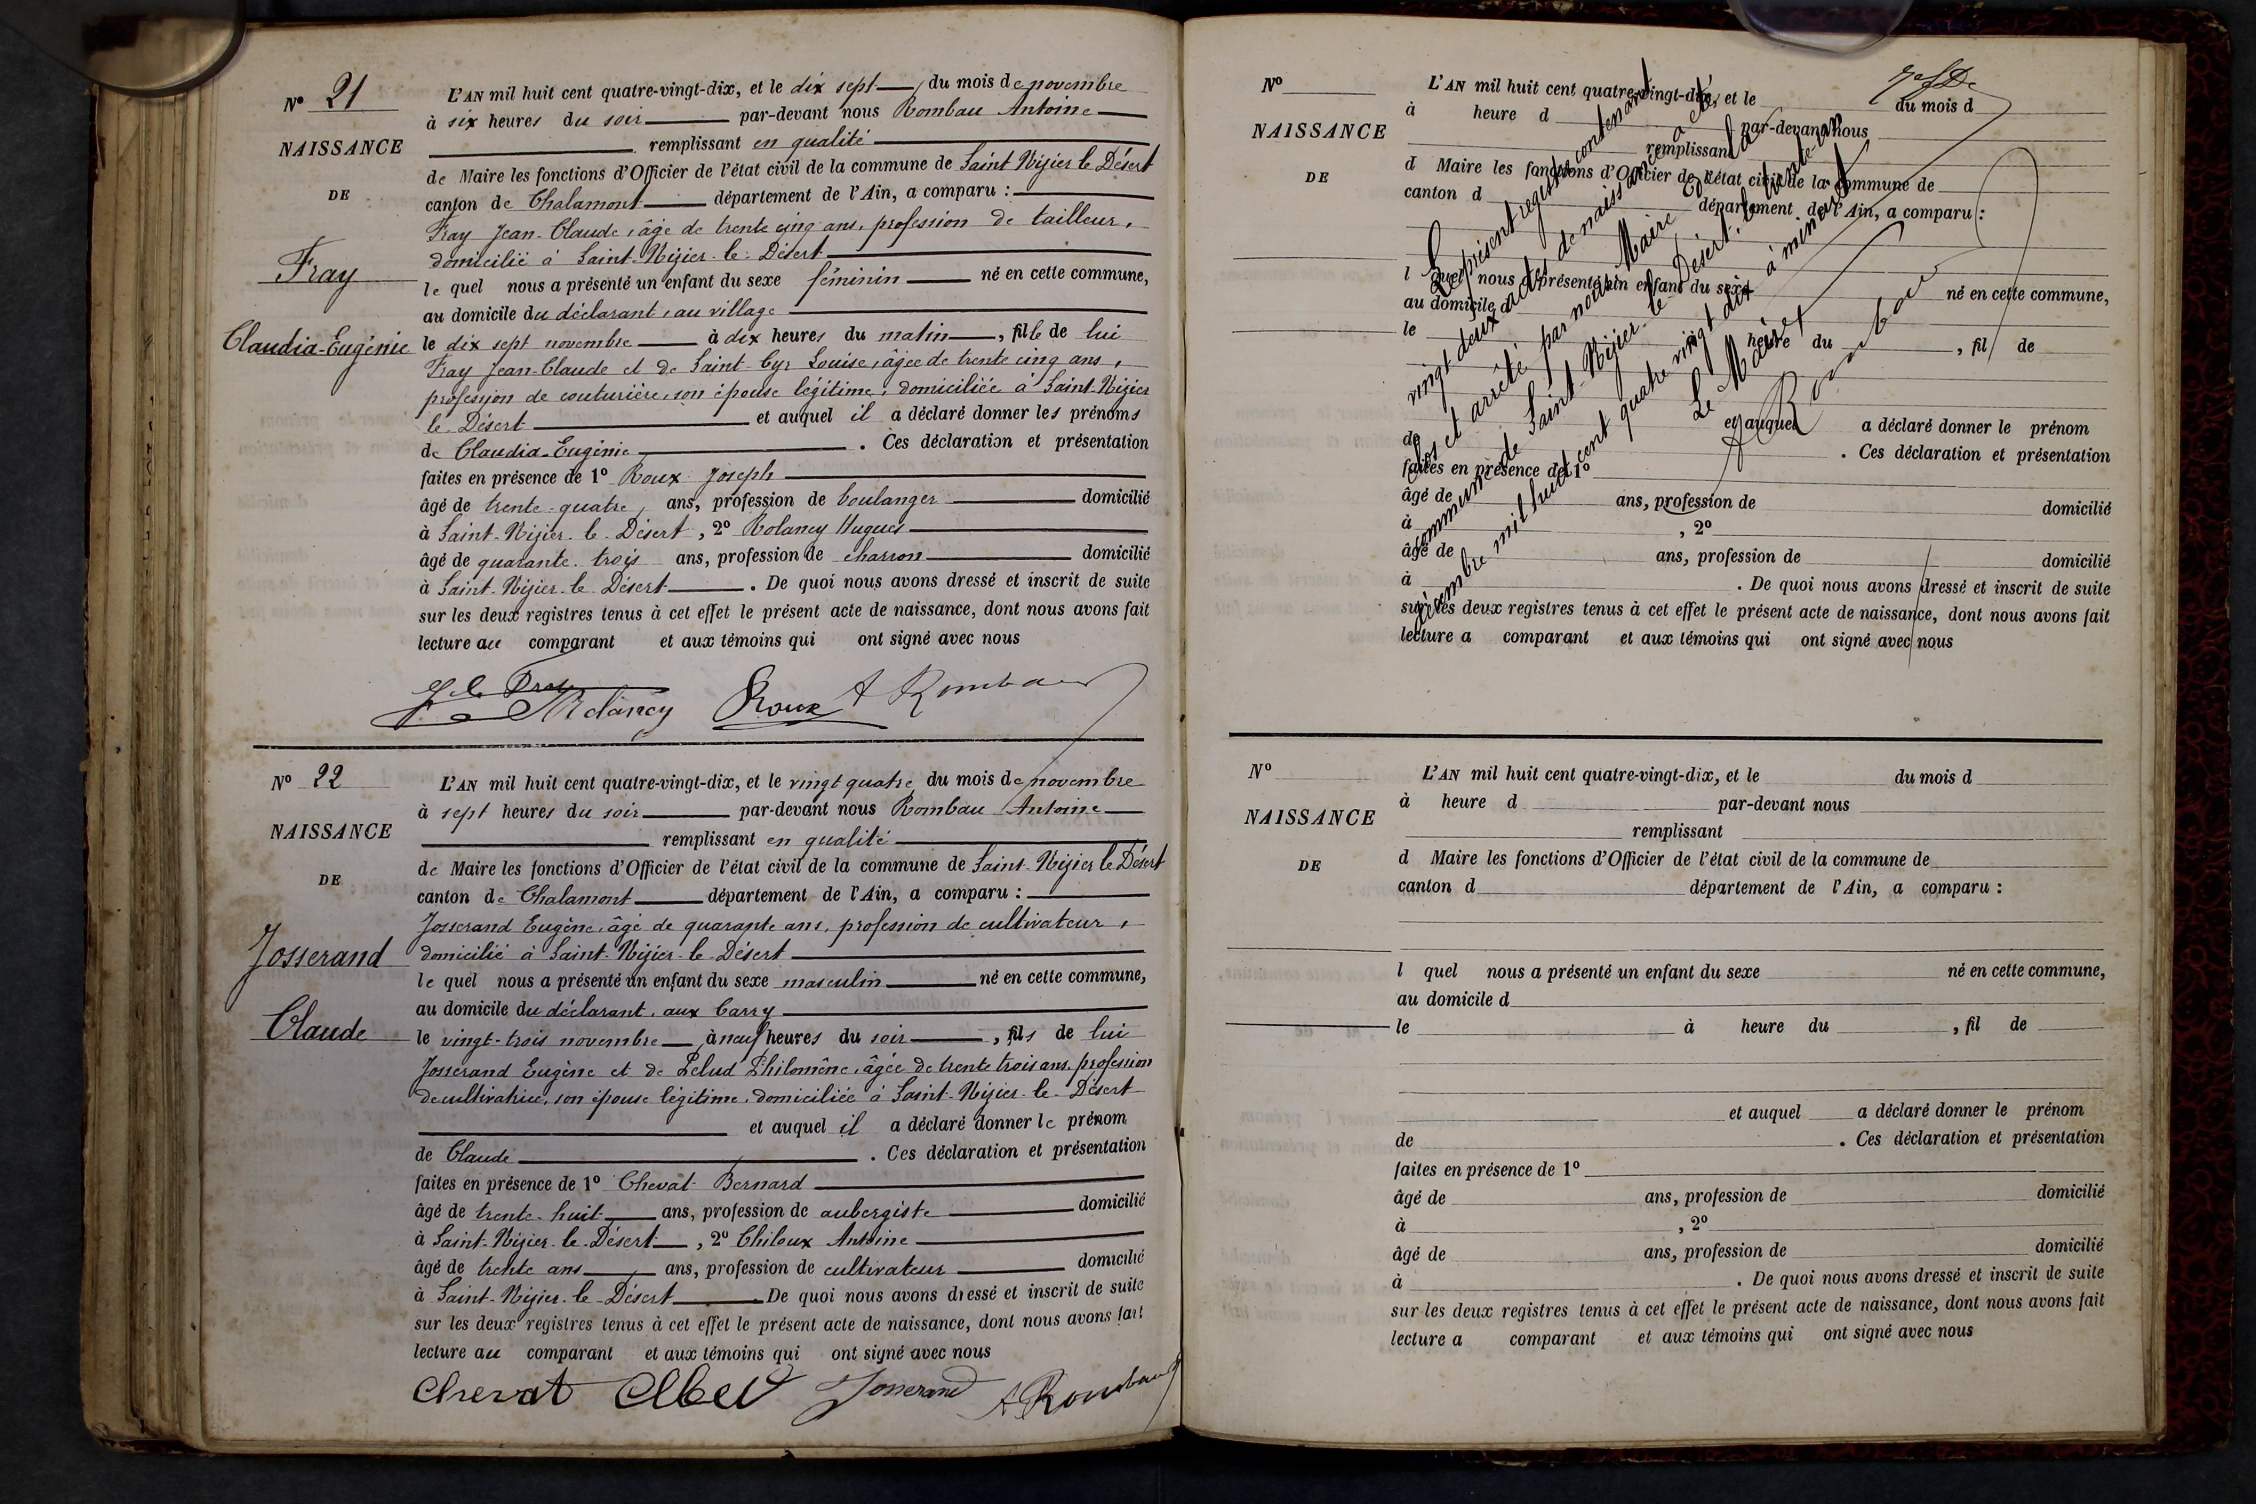 N° 21
NAISSANCE
DE
Fray
Claudia-Eugénie
L'AN mil huit cent quatre-vingt-dix, et le dix sept du mois de novembre
à six heures du soir par-devant nous Rombau Antoine
remplissant en qualité
de Maire les fonctions d'Officier de l'état civil de la commune de Saint Nizier le Désert
canton de Chalamont département de l'Ain, a comparu :
Fray Jean-Claude, âgé de trente cinq ans, profession de tailleur,
domicilié à Saint-Nizier-le-Désert
le quel nous a présenté un enfant du sexe féminin né en cette commune,
au domicile du déclarant, au village
le dix sept novembre à dix heures du matin, fille de lui
Fray Jean-Claude et de Saint-Cyr Louise, âgée de trente cinq ans,
profession de couturière, son épouse légitime, domiciliée à Saint-Nizier
le-Désert et auquel il a déclaré donner les prénoms
de Claudia-Eugénie. Ces déclaration et présentation
faites en présence de 1° Roux Joseph
âgé de trente-quatre ans, profession de boulanger domicilié
à Saint-Nizier-le-Désert, 2° Rolancy Hugues
âgé de quarante-trois ans, profession de charron domicilié
à Saint-Nizier-le-Désert. De quoi nous avons dressé et inscrit de suite
sur les deux registres tenus à cet effet le présent acte de naissance, dont nous avons fait
lecture au comparant et aux témoins qui ont signé avec nous
Rolancy Roux A Rombau
N° 22
NAISSANCE
DE
Josserand
Claude
L'AN mil huit cent quatre-vingt-dix, et le vingt quatre du mois de novembre
à sept heures du soir par-devant nous Rombau Antoine
remplissant en qualité
de Maire les fonctions d'Officier de l'état civil de la commune de Saint-Nizier le Désert
canton de Chalamont département de l'Ain, a comparu :
Josserand Eugène, âgé de quarante ans, profession de cultivateur,
domicilié à Saint-Nizier-le-Désert
le quel nous a présenté un enfant du sexe masculin né en cette commune,
au domicile du déclarant, aux Carry
le vingt-trois novembre à neuf heures du soir, fils de lui
Josserand Eugène et de Pelud Philomène, âgée de trente trois ans, profession
de cultivatrice, son épouse légitime, domiciliée à Saint-Nizier-le-Désert
et auquel il a déclaré donner le prénom
de Claude. Ces déclaration et présentation
faites en présence de 1° Chevat Bernard
âgé de trente-huit ans, profession de aubergiste domicilié
à Saint-Nizier-le-Désert, 2° Chiloux Antoine
âgé de trente ans ans, profession de cultivateur domicilié
à Saint-Nizier-le-Désert. De quoi nous avons dressé et inscrit de suite
sur les deux registres tenus à cet effet le présent acte de naissance, dont nous avons fait
lecture au comparant et aux témoins qui ont signé avec nous
Chevat Josserand A Rombau
N°
NAISSANCE
DE
L'AN mil huit cent quatre-vingt-dix, et le du mois d
à heure d par-devant nous
remplissant
d Maire les fonctions d'Officier de l'état civil de la commune de
canton d département de l'Ain, a comparu :
l quel nous a présenté un enfant du sexe né en cette commune,
au domicile d
le à heure du , fil de
et auquel a déclaré donner le prénom
de . Ces déclaration et présentation
faites en présence de 1°
âgé de ans, profession de domicilié
à , 2°
âgé de ans, profession de domicilié
à . De quoi nous avons dressé et inscrit de suite
sur les deux registres tenus à cet effet le présent acte de naissance, dont nous avons fait
lecture a comparant et aux témoins qui ont signé avec nous
Le présent registre contenant
vingt deux actes de naissance a été
clos et arrêté par nous Maire de la
commune de Saint-Nizier-le-Désert, le trente-un
décembre mil huit cent quatre vingt dix à minuit
Le Maire
A Rombau
N°
NAISSANCE
DE
L'AN mil huit cent quatre-vingt-dix, et le du mois d
à heure d par-devant nous
remplissant
d Maire les fonctions d'Officier de l'état civil de la commune de
canton d département de l'Ain, a comparu :
l quel nous a présenté un enfant du sexe né en cette commune,
au domicile d
le à heure du , fil de
et auquel a déclaré donner le prénom
de . Ces déclaration et présentation
faites en présence de 1°
âgé de ans, profession de domicilié
à , 2°
âgé de ans, profession de domicilié
à . De quoi nous avons dressé et inscrit de suite
sur les deux registres tenus à cet effet le présent acte de naissance, dont nous avons fait
lecture a comparant et aux témoins qui ont signé avec nous